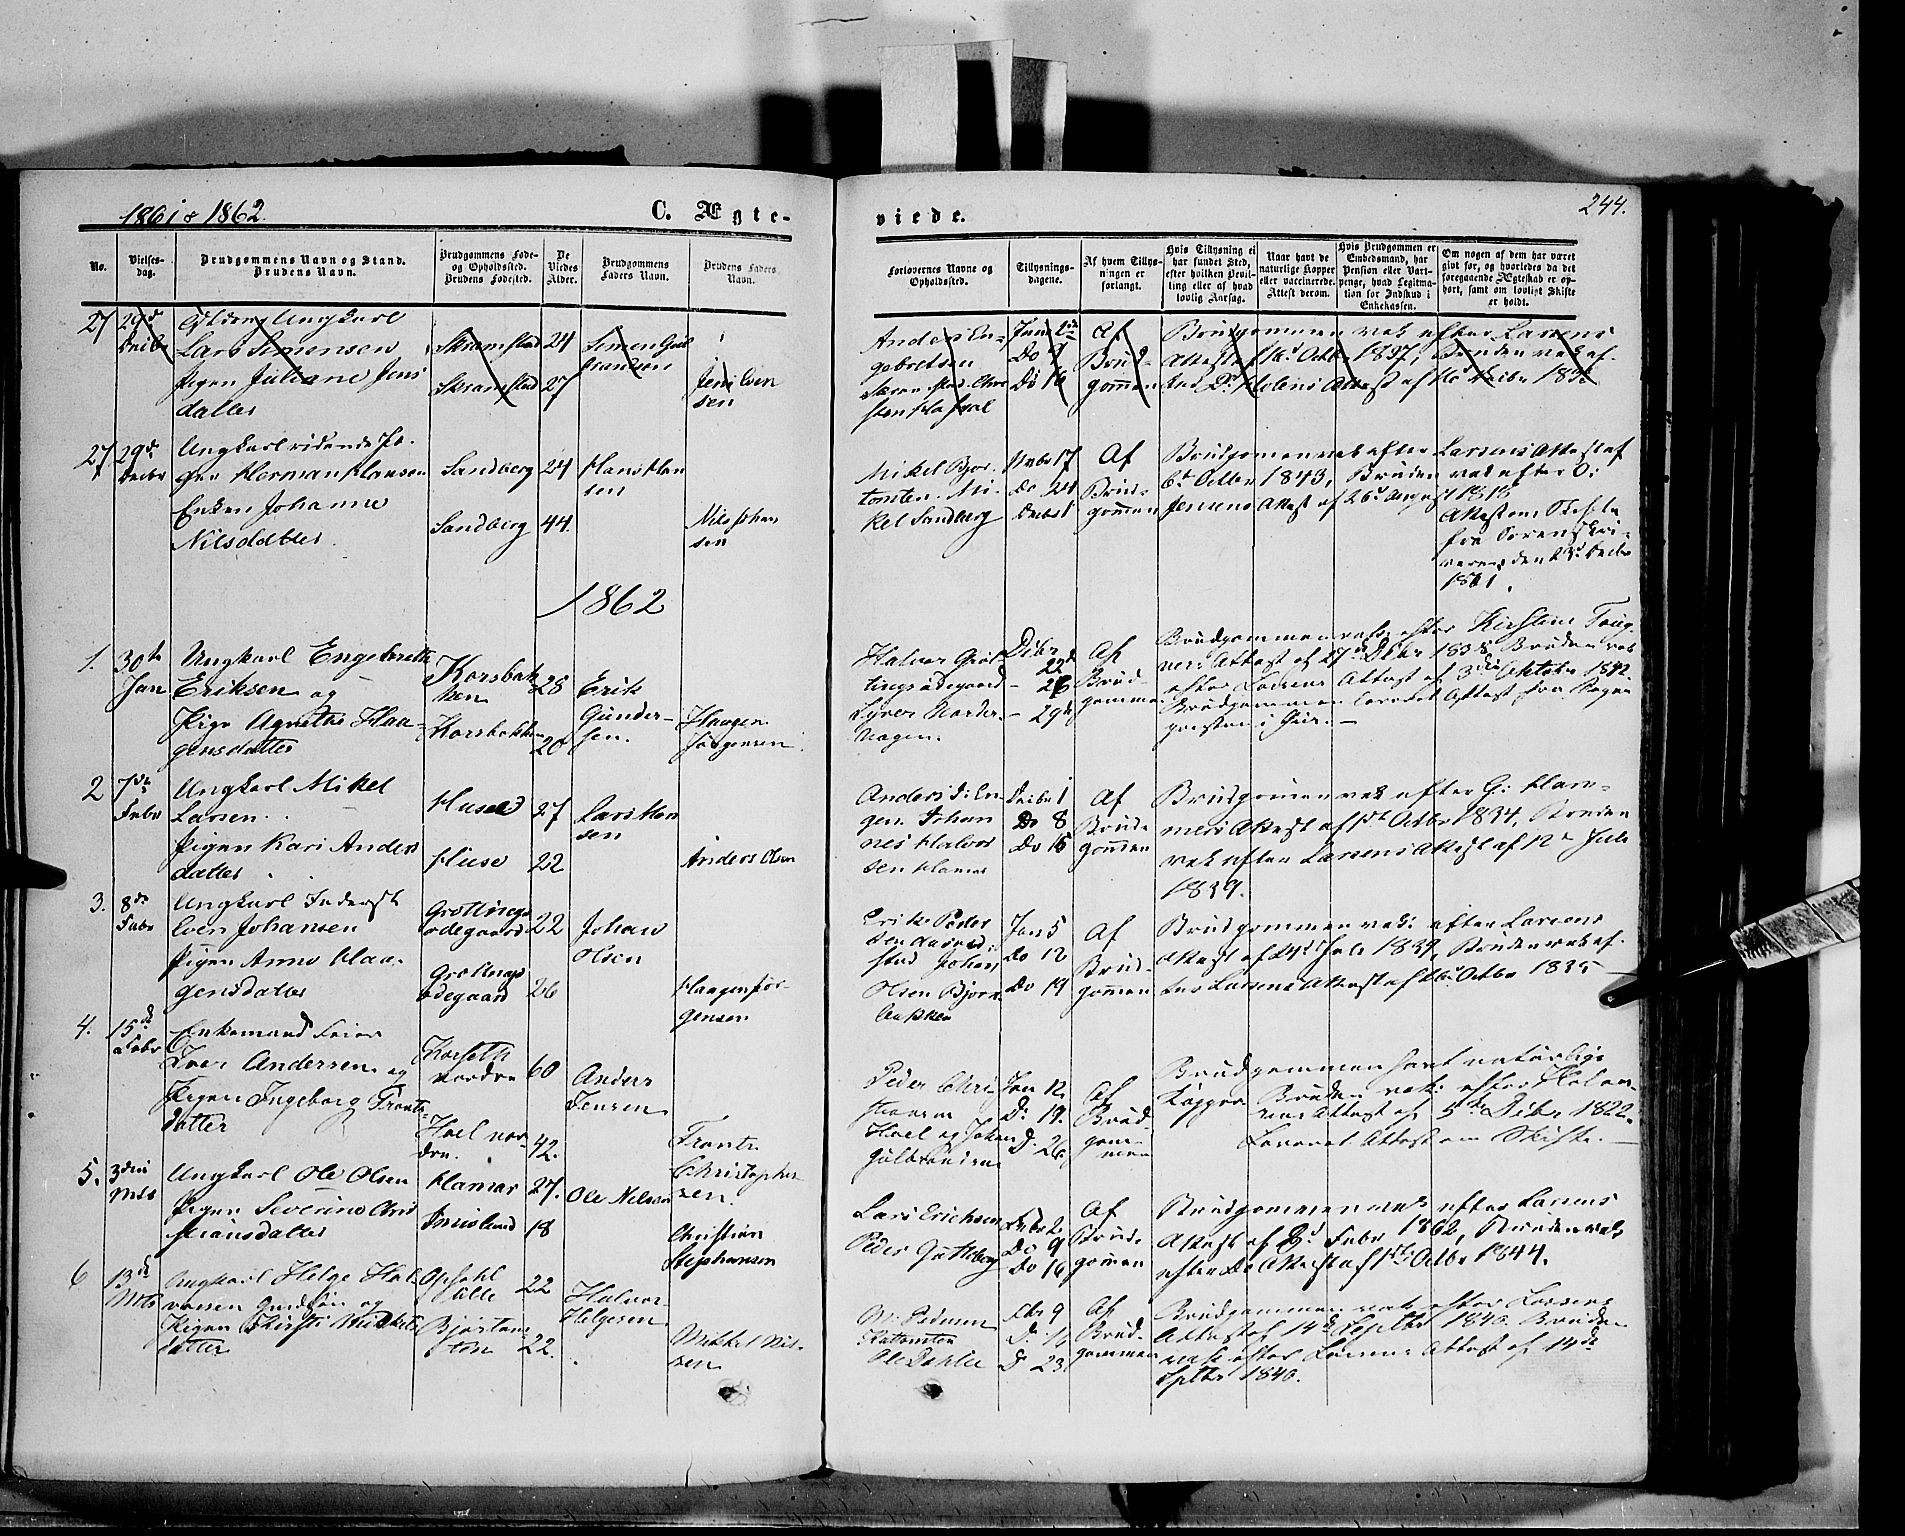 1861 & 1862.
C. Ægte-
No.
Vielses-
dag.
Brudgommens Navn og Stand.
Brudens Navn.
Brudgommens Føde-
og Opholdssted.
Brudens Fødested.
De
Viedes
Alder.
Brudgommens
Faders Navn.
Brudens Faders
Navn.
27
29d
Decbr
Ungkarl
Lars Simensen
Pigen Juliane Jens
datter
Skramstad
Skramstad
24
27
Simen Gul
brandsen
Jens Even
sen
27
29d
Decbr
Ungkarl
Herman Hansen
Enken Johanne
Nilsdatter
Sandberg
Sandberg
24
44
Hans Han
sen
Nils Johan
sen
1862
1.
30te
Jan
Ungkarl Engebreth
Eriksen og
Pige Agnethe Haa-
gensdatter
Korsbak
ken
Korsbakken
28
20
Erik
Gunder-
sen.
Haagen
Jørgensen
2
7de
Febr
Ungkarl Mikel
Larsen
Pigen Kari Anders
datter
Huse
27
22
Lars Han
sen
Anders Olsen
3.
8de
Febr
Ungkarl Inderst
Even Johansen
Pigen Anne Haa-
gensdatter
Grøttings
ødegaard
Grøttings
ødegaard
22
26
Johan
Olsen
Haagen Jør-
gensen
4.
15de
Febr
Enkemand
Iver Andersen og
Pigen Ingeborg Frants
datter
Korseth
nordre
Hoel nor-
dre.
60
42.
Anders
Jensen
Frants
Christopher
sen
5.
3die
Mts
Ungkarl Ole Olsen
Pigen Severine Chri
stiansdatter
Hamar
27.
18
Ole Nilsen
Christian
Stephansen
6
13de
Mts
Ungkarl Helge Hal
vorsen og
Pigen Kirsti Mikkels
datter
Opsahl
lille
22
22.
Halvor
Helgesen
Mikkel Nil-
sen
viede.
244.
Forlovernes Navne og
Opholdssted.
Tillysnings-
dagene.
Af hvem Tillys-
ningen er
forlangt.
Hvis Tillysning ei
har fundet Sted,
efter hvilken Bevil-
ling eller af hvad
lovlig Aarsag.
Naar havt de
naturlige Kopper
eller vaccinerede.
Attest derom.
Hvis Brudgommen er
Embedsmand, har
Pension eller Vart-
penge, hvad Legitma-
tion for Indskud i
Enkekassen.
Om nogen af dem har været
gift før, og hvorledes da det
foregaaende Ægteskab er op-
hørt, samt om lovligt Skifte
er holdt.
Anders En-
gebretsen
Do 16
Af
Brud-
gommen
Brudgommen vak efter Larsens
Attest af
Octbr 1837, Bruden vak ef-
ter
Holens Attest af
Mikel Bjør-
Mi-
kel Sandberg
Nvbr 17
Do 24
Decbr 1
Af
Brud-
gommen
Brudgommen vak efter Larsens Attest af
6d Octbr 1843, Bruden vak efter O:
Jensens Attest af 26d August 1818
Attest om Skifte
fra Sorenskri-
veren den 23d Decbr
1861.
Halvor Grøt-
tingsødegaard
Decbr
22d
- 26
- 29d
Af
Brud-
gommen
Brudgommen vak: efter Kirstine Toug
ners Attest af 27de Decbr 1838. Bruden vak
efter Larsens Attest af 3die Oktober 1842.
Brudgommen lovet Attest fra Sogne
præsten i
Anders
Johan
nes Halvor
sen Hamar
Decbr 1
Do 8
Do 15
Af
Brud-
gommen
Brudgommen vak efter G: Ham-
mers Attest af 1ste Octbr 1834, Bruden
vak efter Larsens Attest af 12te Juli
1839.
Erik Peder
sen
stad Johan
Olsen Bjørn
bakken
Jan 5
Do 12
Do 19
Af
Brud-
gommen
Brudgommen vak: efter Larsens
Attest af
Juli 1839, Bruden vak ef-
ter Larsens Attest af
Octbr 1835
Peder Chri-
Hoel og Johan
Gulbrandsen
Jan 12
D. 19.
D. 26
Af
Brud-
gom-
men
Brudgommen havt naturlige
Kopper Bruden vak: efter
Attest af 5te Decbr 1822.
Lovet Attest om Skifte.
Lars Erichsen
Peder
Febr 2
Do 9
Do 16
Af
Brud-
gommen
Brudgommen vak efter Larsens
Attest af
Febr 1862, Bruden vak
efter Do Attest af 1ste Octbr 1844.
Pedersen
Ole Dahle
Febr 9
D. 16
D. 23
Af
Brud-
gommen
Brudgommen vak efter Larsens
Attest af 14de Septbr 1840. Bruden
vak efter Larsens Attest af 14de
Septbr 1840.